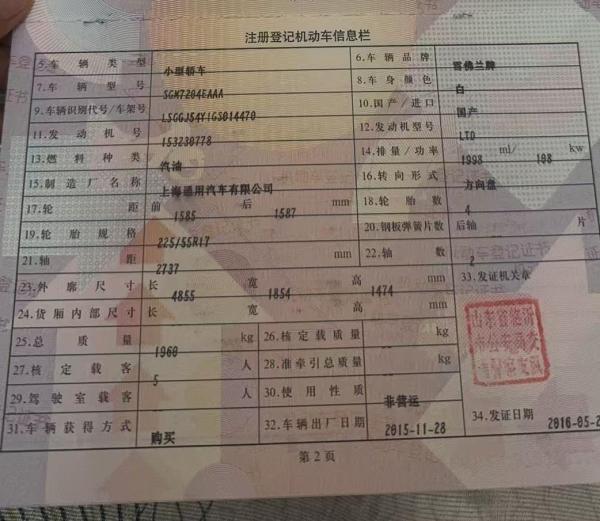 注册登记机动车信息栏
5.车辆类型 小型轿车 6.车辆品牌 雪佛兰牌
7.车辆型号 SGM7204EAAA 8.车身颜色 白
9.车辆识别代号/车架号 LSGGJ54Y1GS014470 10.国产/进口 国产
11.发动机号 153230778 12.发动机型号 LTD
13.燃料种类 汽油 14.排量/功率 1998 ml/ 108 kw
15.制造厂名称 上海通用汽车有限公司 16.转向形式 方向盘
17.轮距 前 1585 后 1587 mm 18.轮胎数 4
19.轮胎规格 225/55R17 20.钢板弹簧片数 后轴 片
21.轴距 2737 mm 22.轴数 2
23.外廓尺寸 长 4855 宽 1854 高 1474 mm 33.发证机关章
24.货厢内部尺寸 长 宽 高 mm
25.总质量 1960 kg 26.核定载质量 kg
27.核定载客 5 人 28.准牵引总质量 kg
29.驾驶室载客 人 30.使用性质 非营运
31.车辆获得方式 购买 32.车辆出厂日期 2015-11-28 34.发证日期 2016-05-2
第2页